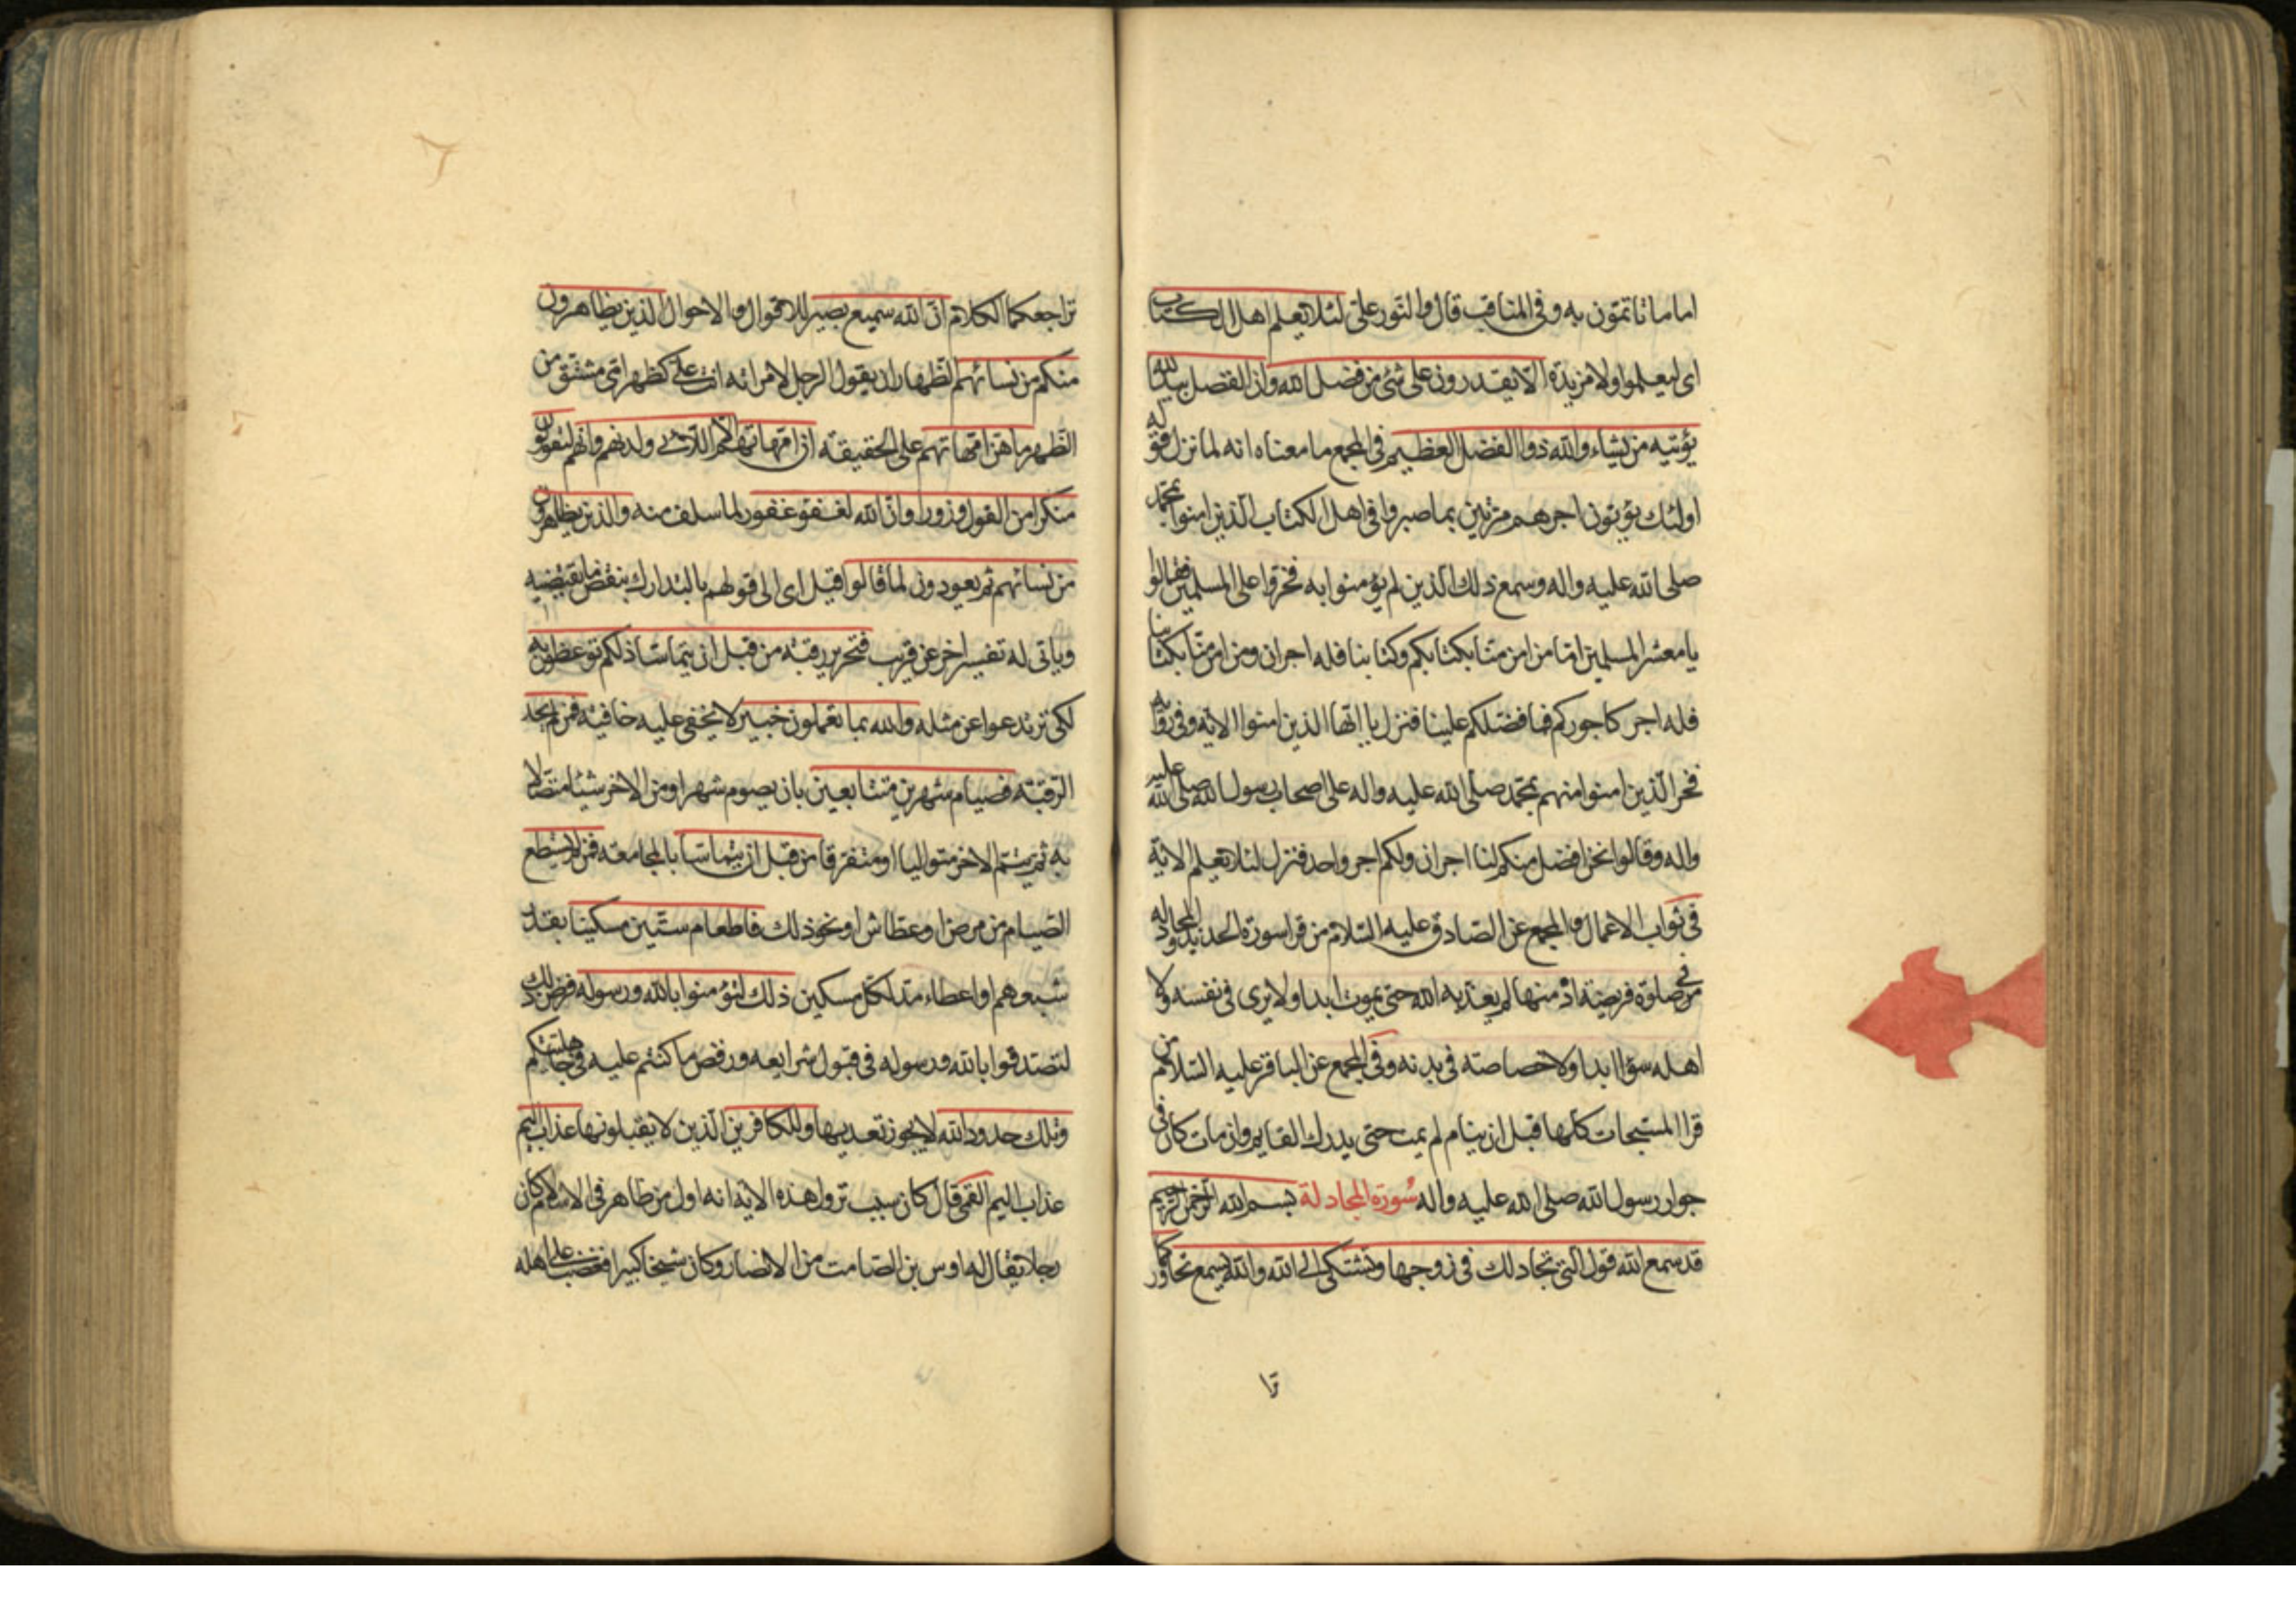 اماما تاتمّون به وفی المناقب قال والنّور علیّ لئلا یعلم اهل الکتاب
ای لیعلموا ولا مزیدة الّا یقدرون علی شئ من فضل الله وان الفضل بید الله
یؤتیه من یشاء والله ذوا الفضل العظیم فی المجمع ما معناه انه لما نزل قوله
اولئک یؤتون اجرهم مرّتین بما صبروا فی اهل الکتاب الّذین امنوا بمحمّد
صلی الله علیه واله وسمع ذلک الّذین لم یؤمنوا به فخروا علی المسلمین فقالوا
یا معشر المسلمین امّا من امن منّا بکتابکم وکتابنا فله اجران ومن امن منّا بکتابنا
فله اجر کاجورکم فما فضلکم علینا فنزل یا ایّها الذین امنوا الایة وفی روایة
فخر الّذین امنوا منهم بمحمّد صلّی الله علیه واله علی اصحاب رسول الله صلی الله علیه
واله وقالوا نحن افضل منکم لنا اجران ولکم اجر واحد فنزل لئلا یعلم الایة
فی ثواب الاعمال والمجمع عن الصّادق علیه السّلام من قرا سورة الحدید والمجادله
فی صلوة فریضة ادمنها لم یعذّبه الله حتی یموت ابدا ولا یری فی نفسه ولا
اهله سؤا ابدا ولا خصاصة فی بدنه وفی المجمع عن الباقر علیه السّلام من
قرا المسبّحات کلّها قبل ان ینام لم یمت حتی یدرک القایم وان مات کان فی
جوار رسول الله صلی الله علیه واله سورة المجادلة بسم الله الرّحمن الرّحیم
قد سمع الله قول الّتی تجادلک فی زوجها وتشتکی الی الله والله یسمع تحاورکما
قا
تراجعکما الکلام انّ الله سمیع بصیر للاقوال والاحوال الذین یظاهرون
منکم من نسائهم الظّهار ان یقول الرجل لامراته انت علیّ کظهر امّی مشتقّ من
الظّهر ما هنّ امّهاتهم علی الحقیقة ان امّهاتهم الّا اللّائی ولدنهم وانّهم لیقولون
منکرا من القول وزورا وانّ الله لعفوّ غفور لما سلف منه والذین یظاهرون
من نسائهم ثم یعودون لما قالوا قیل ای الی قولهم بالتدارک بنقض ما یقتضیه
ویاتی له تفسیر اخر عن قریب فتحریر رقبة من قبل ان یتماسّا ذلکم توعظون به
لکی ترتدعوا عن مثله والله بما تعملون خبیر لا یخفی علیه خافیة فمن لم یجد
الرّقبة فصیام شهرین متتابعین بان یصوم شهرا ومن الاخر شیئا متّصلا
به ثم یتمّ الاخر متوالیا او متفرّقا من قبل ان یتماسّا بالمجامعة فمن لم یستطع
الصّیام من مرض او عطاش او نحو ذلک فاطعام ستّین مسکینا بقدر
شبعهم او اعطاء مدّ لکلّ مسکین ذلک لتؤمنوا بالله ورسوله فرض ذلک
لتصدّقوا بالله ورسوله فی قبول شرایعه ورفض ما کنتم علیه فی جاهلیتکم
وتلک حدود الله لا یجوز تعدیها وللکافرین الّذین لا یقبلونها عذاب الیم
عذاب الیم القمّی قال کان سبب نزول هذه الایة انه اول من ظاهر فی الاسلام کان
رجلا یقال له اوس بن الصّامت من الانصار وکان شیخا کبیرا فغضب علی اهله